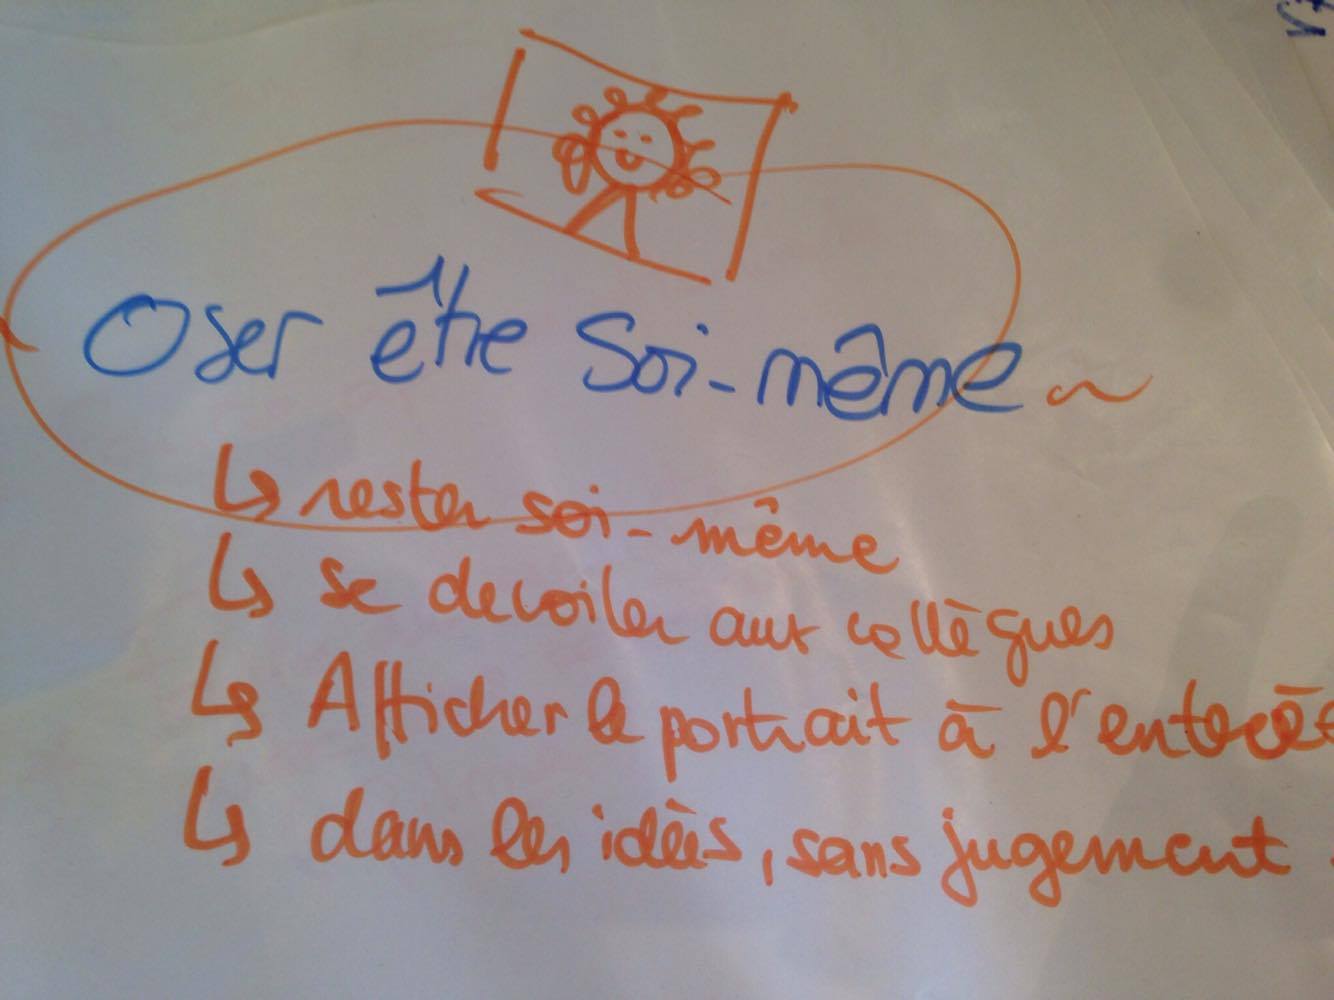 Oser être Soi-même ~
↳ rester soi-même
↳ se devoiler aux collègues
↳ Afficher le portrait à l'entrée
↳ dans les idées, sans jugement.